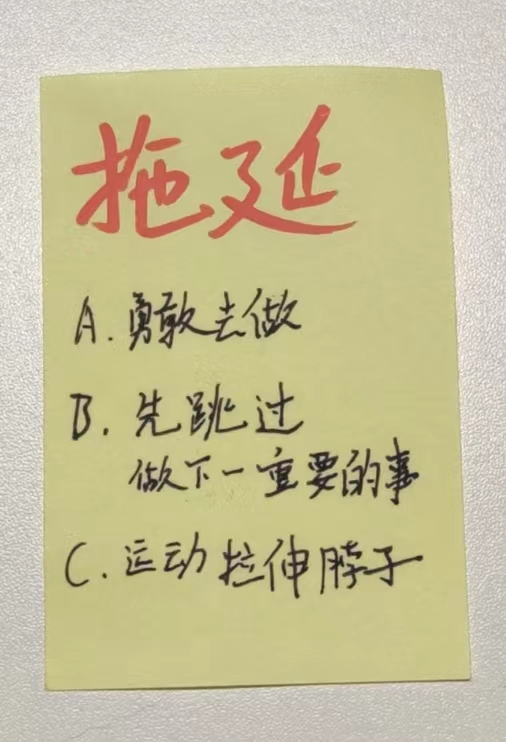 拖延
A. 勇敢去做
B. 先跳过
做下一重要的事
C. 运动 拉伸脖子